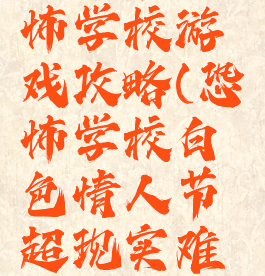 怖学校游
戏攻略(恐
怖学校白
色情人节
超现实难